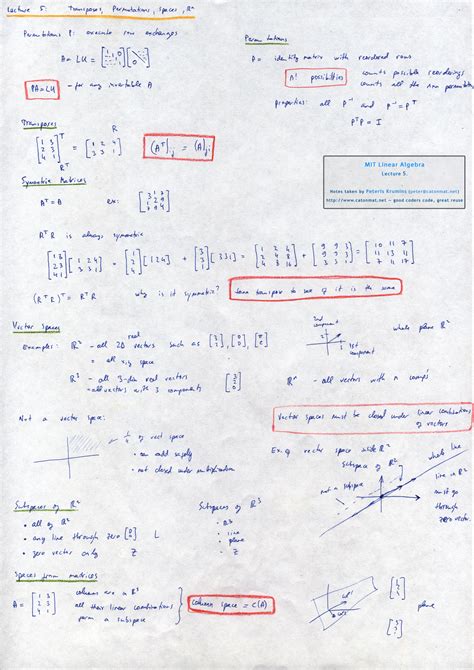 Lecture 5: Transposes, Permutations, Spaces, R^n
Permutations P: execute row exchanges
A = LU = [1 1 0 1]
PA = LU - for any invertable A
Permutations
A = identity matrix with reordered rows
n! possibilities counts possible reorderings
counts all the nxn permutations
properties: all P^-1 and P^-1 = P^T
P^T P = I
Transposes
[1 3; 2 3; 4 1]^T = [1 2 4; 3 3 1]
R^T R
(A^T)ij = (A)ji
MIT Linear Algebra
Lecture 5.
Notes taken by Peteris Krumins (peter@catonmat.net)
http://www.catonmat.net - good coders code, great reuse
Symmetric Matrices
A^T = A ex: [3 1 7; 1 2 9; 7 9 4]
R^T R is always symmetric
[1 3; 2 3; 4 1] [1 2 4; 3 3 1] = [1; 2; 4] [1 2 4] + [3; 3; 1] [3 3 1] = [1 2 4; 2 4 8; 4 8 16] + [9 9 3; 9 9 3; 3 3 1] = [10 11 7; 11 13 11; 7 11 17]
(R^T R)^T = R^T R why is it symmetric? take transpose to see if it is the same
Vector Spaces
Examples: R^2 - all 2D real vectors such as [3; 2], [0; 0], [π; e]
= all x,y space
R^3 - all 3-dim real vectors
- all vectors with 3 components [3; 2; 0]
2nd component
1st component
whole plane R^2
R^n - all vectors with n comp's
Not a vector space:
1/4 of vect space
• can add supply
• not closed under multiplication
Vector spaces must be closed under linear combinations of vectors
Ex. of vector space inside R^2
subspace of R^2
whole line
not a subspace
line in R^2 must go through zero vector
Subspaces of R^2
• all of R^2
• any line through zero [0; 0] L
• zero vector only Z
Subspaces of R^3
• R^3
• line
• plane
• Z
Spaces from matrices
A = [1 3; 2 3; 4 1] columns are in R^3
all their linear combinations
form a subspace
column space = C(A)
col 1
col 2
[1; 2; 4]
plane
[3; 3; 1]